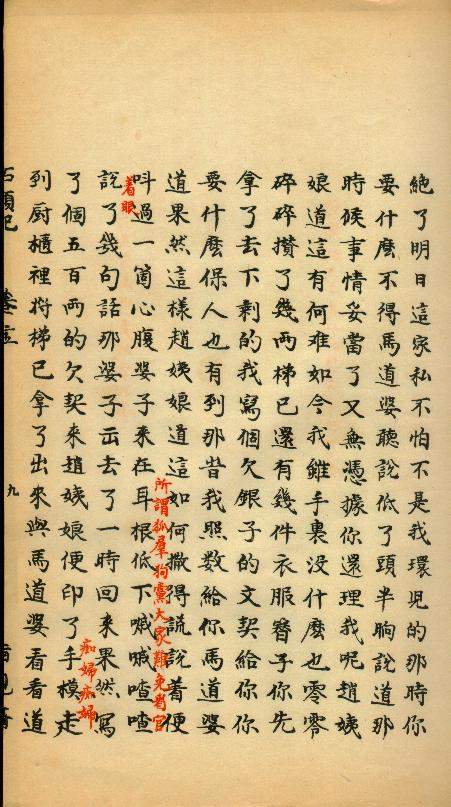 絶了明日這家私不怕不是我環児的那時你
要什麽不得馬道婆聽說低了頭半晌說道那
時候事情妥當了又無憑據你還理我呢趙姨
娘道這有何难如今我雖手裏没什麽也零零
碎碎攢了幾両梯己還有幾件衣服簪子你先
拿了去下剩的我寫個欠銀子的文契給你你
要什麽保人也有到那昔我照数給你馬道婆
道果然這樣趙姨娘道這如何撒得謊說着便
所謂狐羣狗黨大家難免看官
着眼
呌過一箇心腹婆子来在耳根低下嘁嘁喳喳
說了幾句話那婆子出去了一時回来果然寫
痴婦痴婦
了個五百両的欠契来趙姨娘便印了手模走
到厨櫃裡将梯己拿了出来與馬道婆看看道
石頭記
九